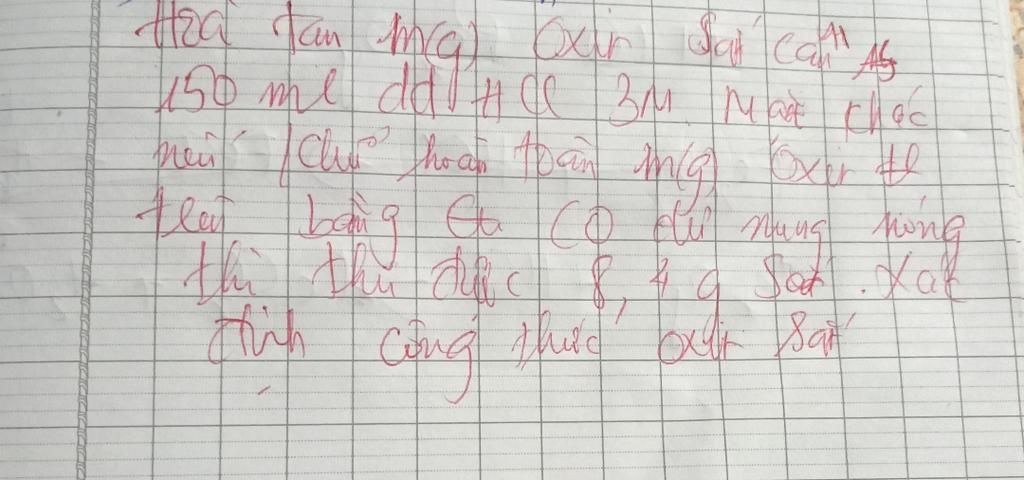 Hoà tan m(g) Oxit Sắt cần
150 ml dd HCl 3M. Mặt khác
nếu khử hoàn toàn m(g) Oxit
trên bằng CO dư nung nóng
thì thu được 8,4 g Sắt. Xác
định công thức oxit Sắt